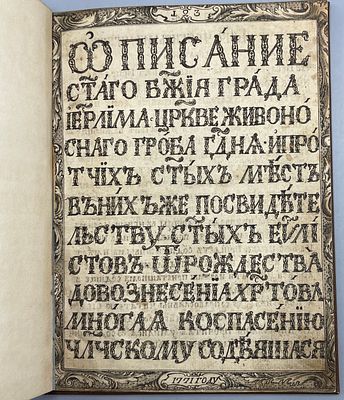 ѾПИСА́НИЕ
СТ҃А́ГО БЖ҃ІЯ ГРА́ДА
ІЕРⷭ҇ЛИ́МА· ЦР҃КВЕ ЖИВОНО́
СНАГО ГРО́БА ГДⷭ҇НА· И́ПРО́
ТЧІИХЪ СТ҃ЫХЪ МѢСТЪ
ВЪНИ́ХЪЖЕ ПОСВИДѢТЕ
ЛЬСТВУ СТ҃Ы́ХЪ ЕѴⷢ҇ЛІ
СТОВЪ· Ѿ РОЖДЕСТВА̀
ДОВОЗНЕСЕ́НІА ХРⷭ҇ТОВА
МНО́ГАА КОСПАСЕ́НІЮ
ЧЛ҃ЧСКОМУ СОДѢ́ЯШАСЯ
1771 ГОДУ